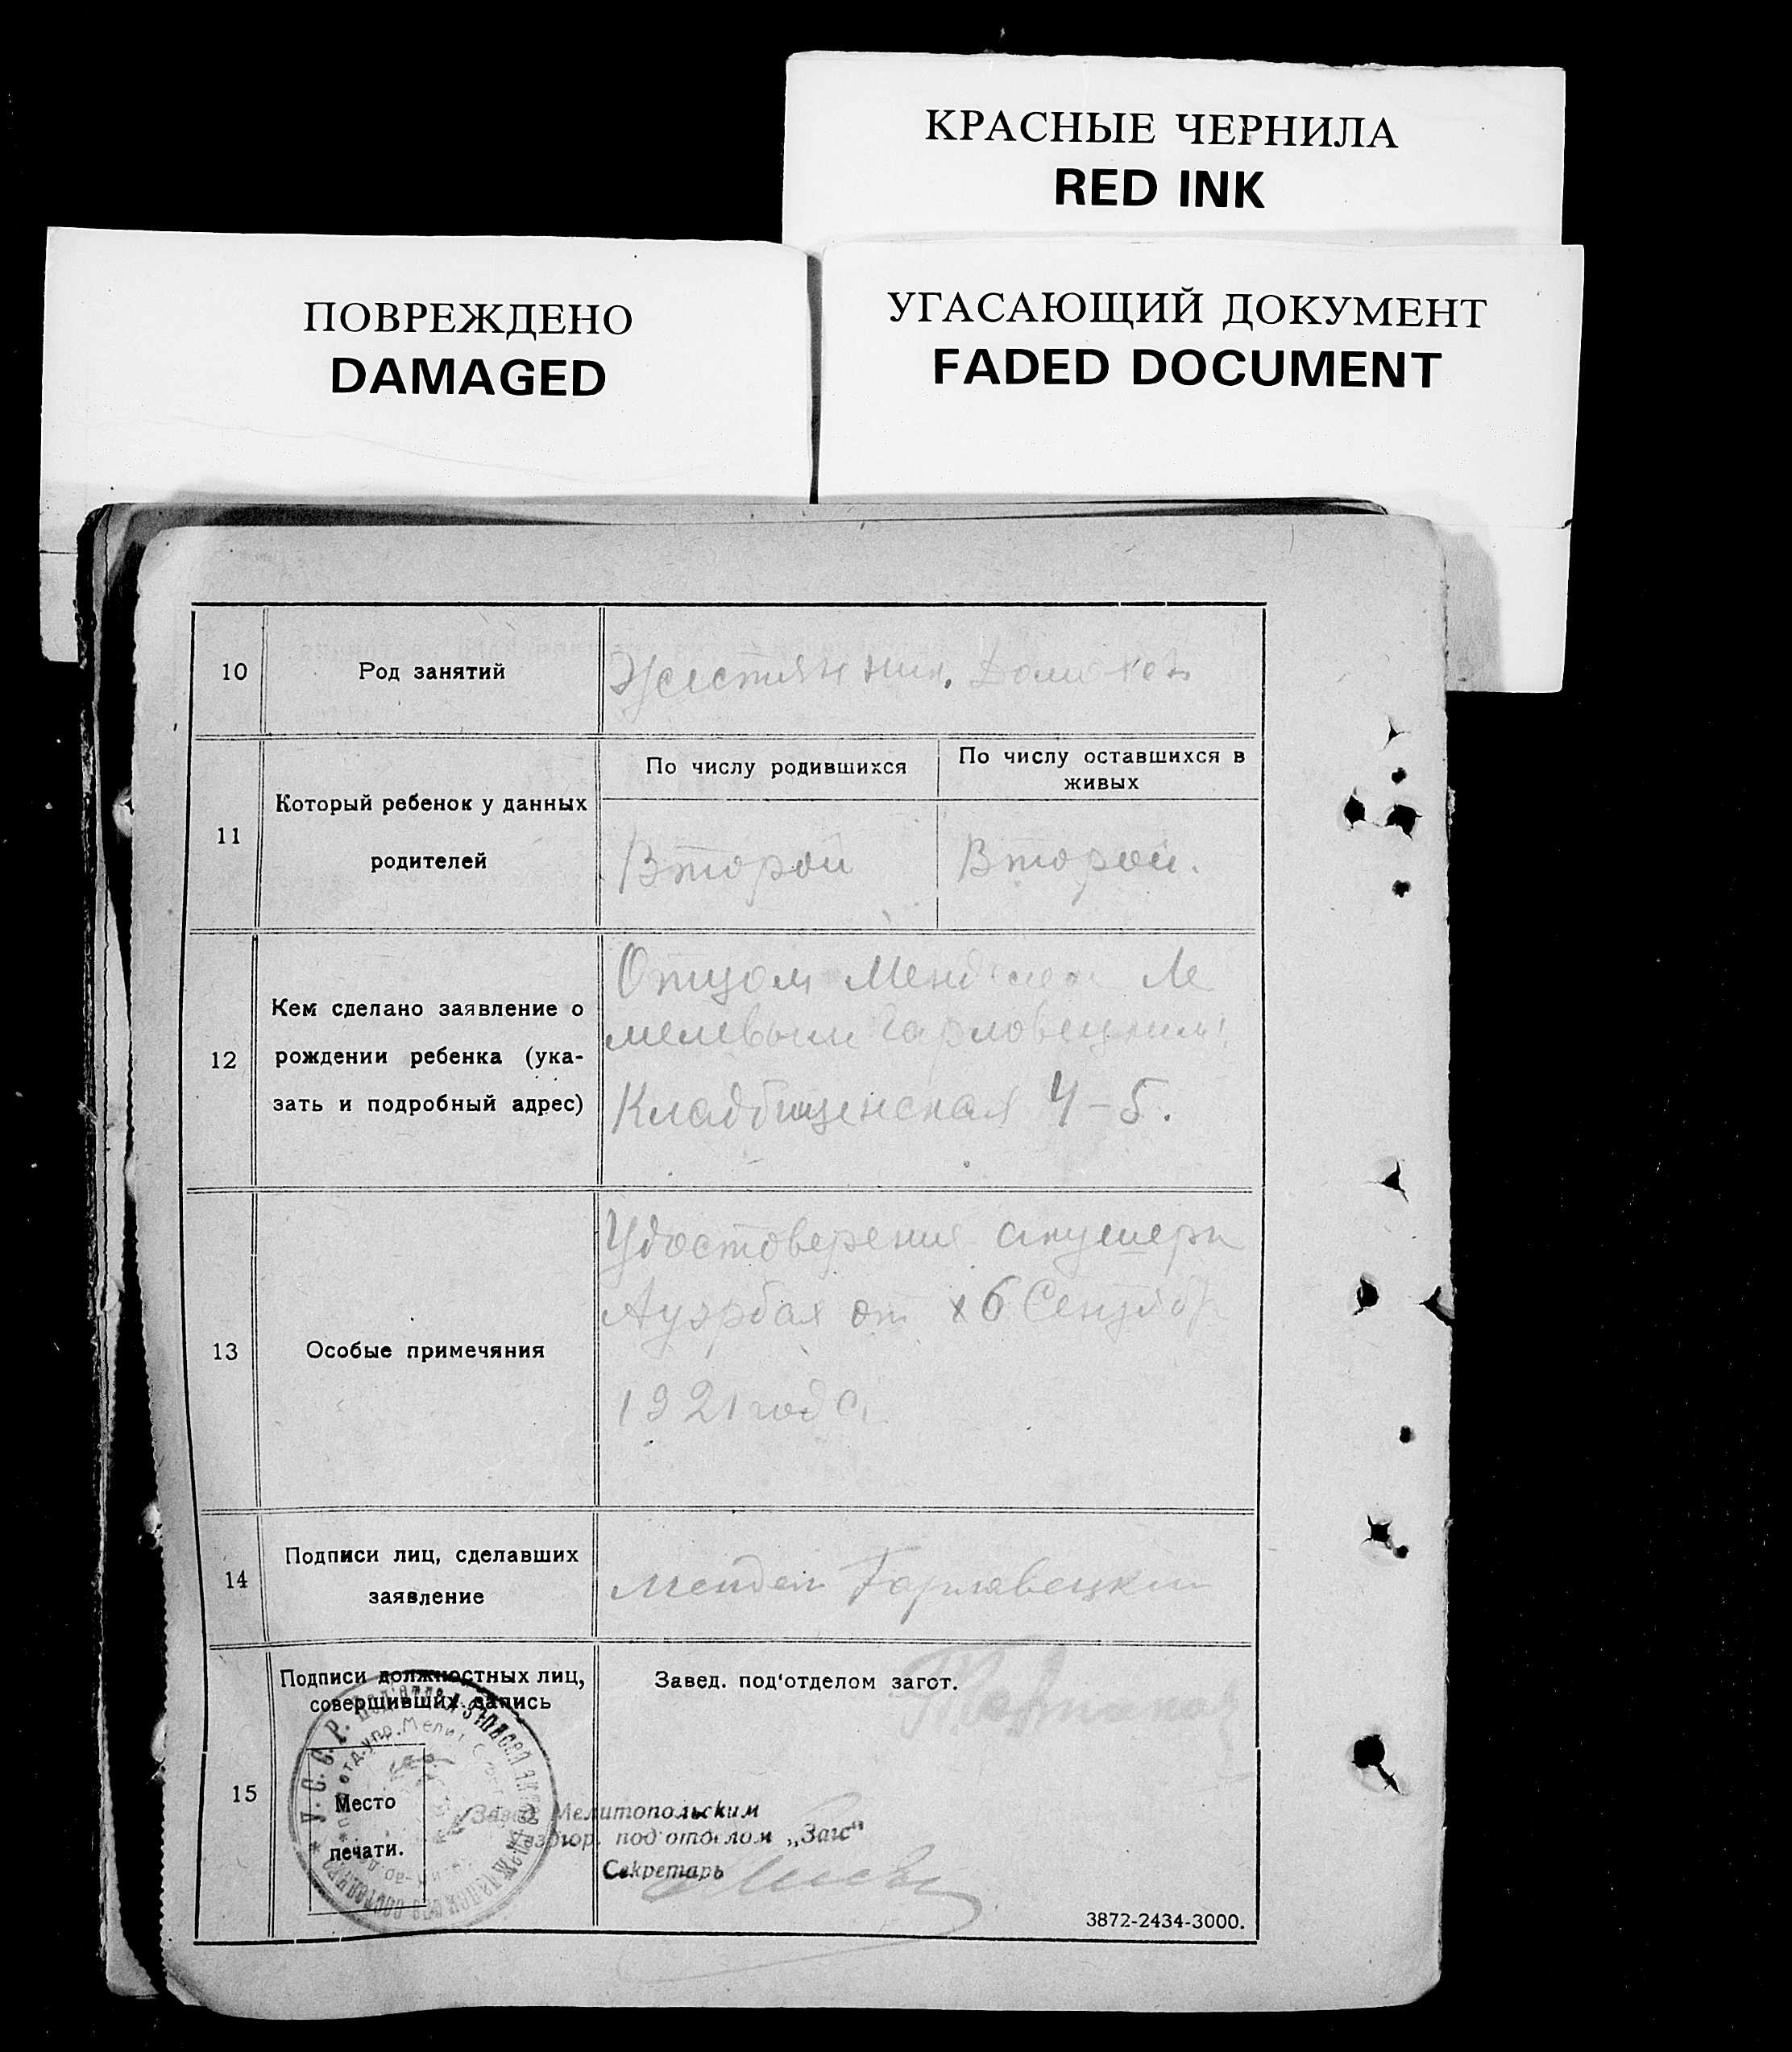 КРАСНЫЕ ЧЕРНИЛА
RED INK
ПОВРЕЖДЕНО
DAMAGED
УГАСАЮЩИЙ ДОКУМЕНТ
FADED DOCUMENT
10
Род занятий
Жестянник.
11
Который ребенок у данных
родителей
По числу родившихся
По числу оставшихся в
живых
Второй
Второй.
12
Кем сделано заявление о
рождении ребенка (ука-
зать и подробный адрес)
Отцом
Кладбищенская 4-5.
13
Особые примечяния
Удостоверение акушерк
Ауэрбах от 6
1921 года
14
Подписи лиц, сделавших
заявление
Мендель
15
Подписи должностных лиц,
совершивших запись
Место
печати.
Завед. под'отделом загот.
Завед. Мелитопольским
под'отделом „Загс"
Секретарь
3872-2434-3000.